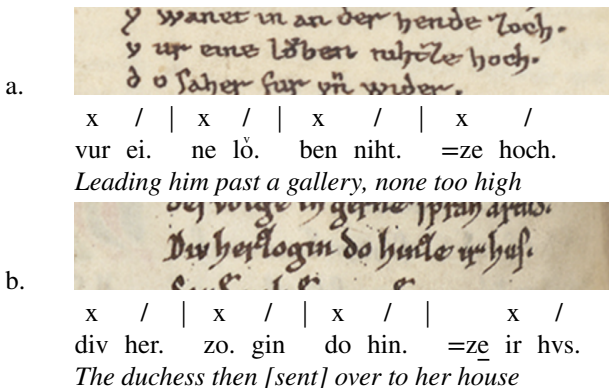 y wanet in an der hende zoch.
y ur eine loͮben nihtze hoch.
d o saher fur vn̄ wider.
a.
x / | x / | x / | x /
vur ei. ne loͮ. ben niht. =ze hoch.
Leading him past a gallery, none too high
Div herzogin do hintze ir hus.
b.
x / | x / | x / | x /
div her. zo. gin do hin. =ze ir hvs.
The duchess then [sent] over to her house